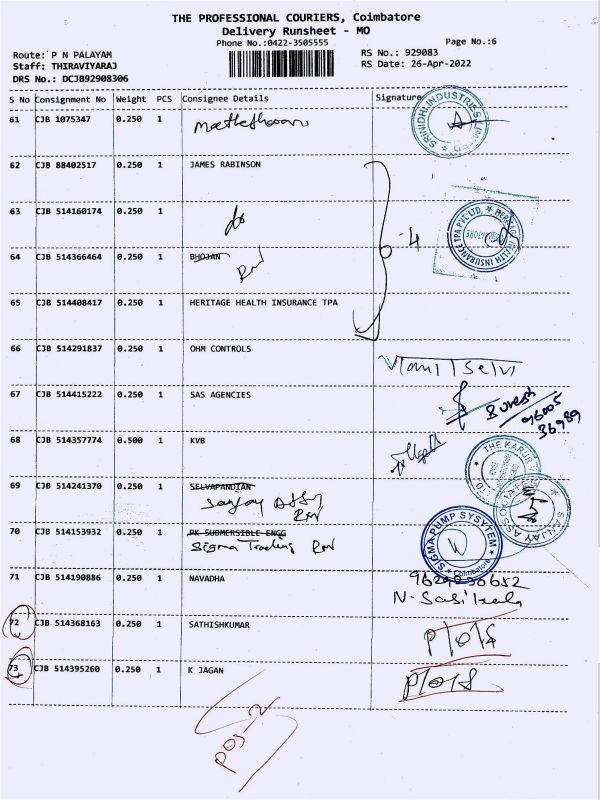 THE PROFESSIONAL COURIERS, Coimbatore
Delivery Runsheet - MO
Phone No.:0422-3505555
Page No.:6
Route: P N PALAYAM
RS No.: 929083
Staff: THIRAVIYARAJ
RS Date: 26-Apr-2022
DRS No.: DCJB92908306
S No Consignment No Weight PCS Consignee Details Signature
61 CJB 1075347 0.250 1
62 CJB 88402517 0.250 1 JAMES RABINSON
63 CJB 514160174 0.250 1 do
-4
64 CJB 514366464 0.250 1 BHOJAN
65 CJB 514408417 0.250 1 HERITAGE HEALTH INSURANCE TPA
66 CJB 514291837 0.250 1 OHM CONTROLS
67 CJB 514415222 0.250 1 SAS AGENCIES
Suresh
96005
36989
68 CJB 514357774 0.500 1 KVB
THE KARUR
69 CJB 514241370 0.250 1 SELVAPANDIAN
Sanjay Assy
70 CJB 514153932 0.250 1 PK SUBMERSIBLE ENGG
Sigma Trading
SIGMA PUMP SYSYTEM
Coimbatore
71 CJB 514190886 0.250 1 NAVADHA
72 CJB 514368163 0.250 1 SATHISHKUMAR
73 CJB 514395260 0.250 1 K JAGAN